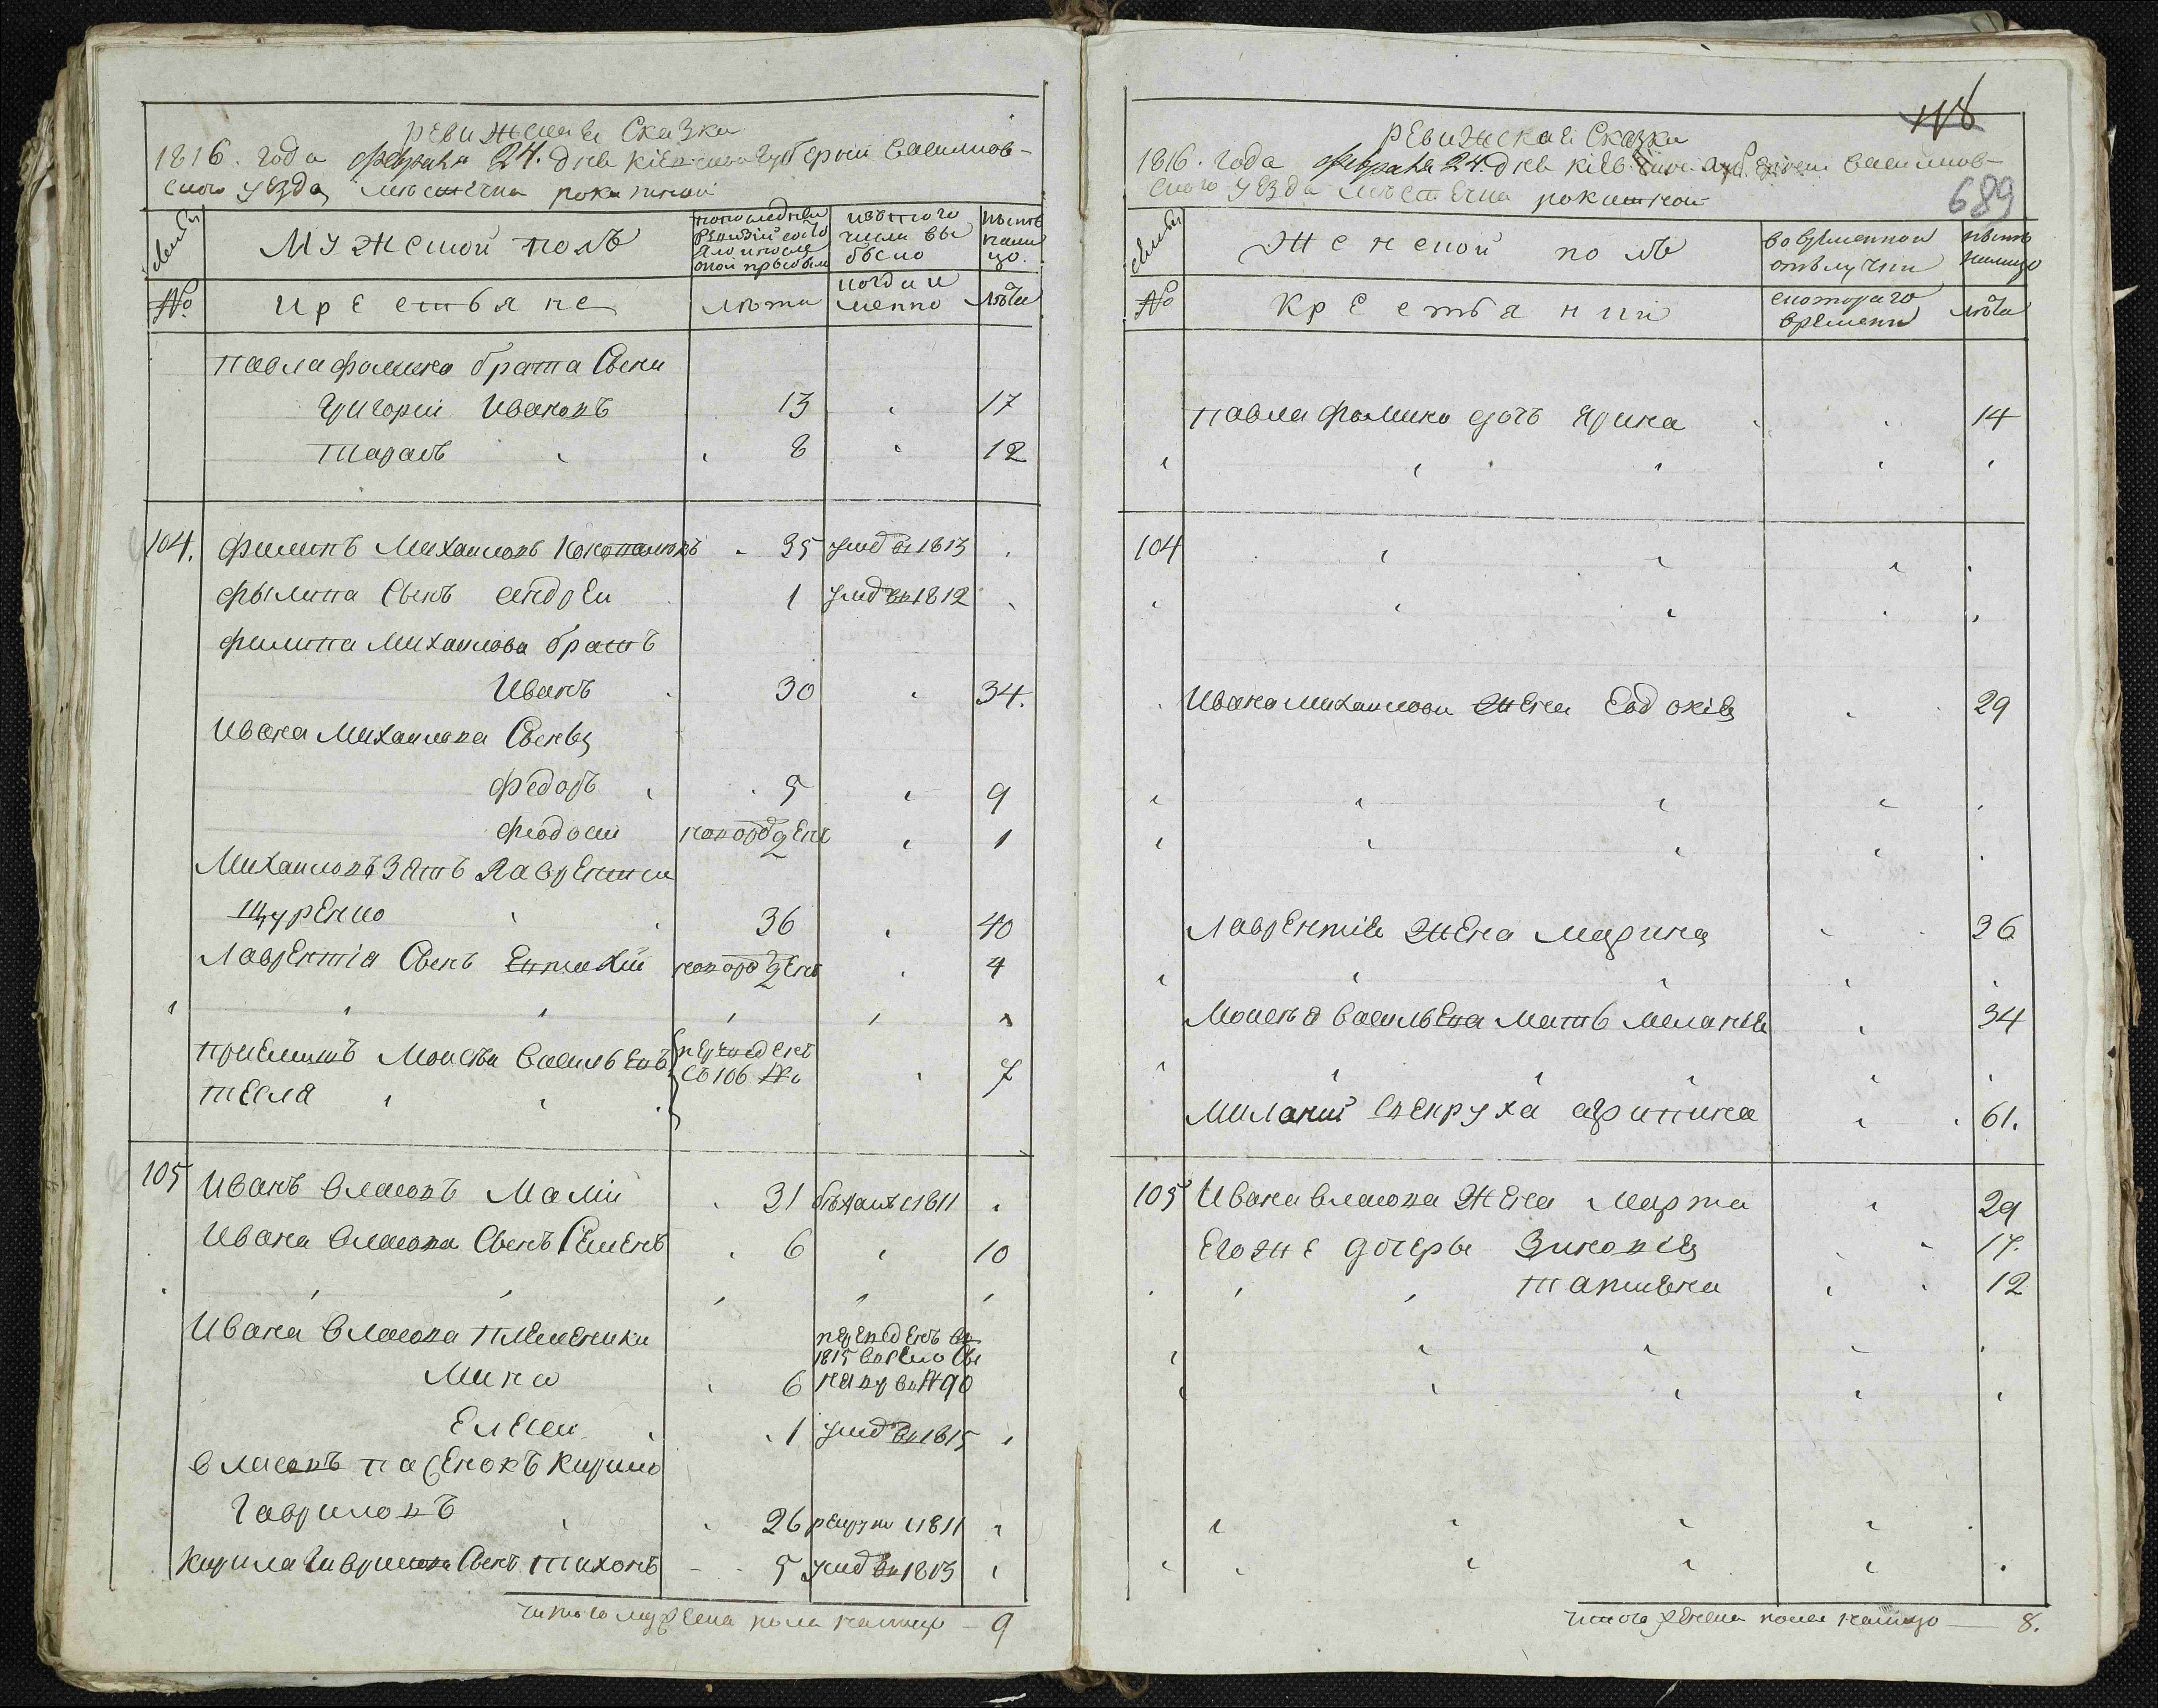 ревижская Сказка
1816. года февраля 24. дня кіевской губерніи Василков-
ского уезда местечка рокитной
семьи
Мужеской полъ
по последней ревизіи состояло и после оной прибыло
изъ того числа выбыло
ныне на лицо.
№
Крестьяне
лета
когда именно
лета
Павла фомина брата Сыни
Григорій Ивановъ 13 17
Тарасъ 8 12
104. Филипъ Михаиловъ 35 умер въ 1813
Филипа Сынъ андреи 1 умер въ 1812
Филипа Михаилова братъ
Иванъ 30 34.
Ивана Михаилова Сыны
Федоръ 5 9
Феодоси новорожденъ 1
Михаиловъ Зять Лаврентии
Щуренко 36 40
Лаврентія Сынъ Евтихій новорожденъ 4
приемышъ Мойсей Васильевъ переведенъ
Тесля съ 106 № 7
105 Иванъ Власовъ Малій 31 бежалъ 1811
Ивана Власова Сынъ Семенъ 6 10
Ивана Власова племеники переведенъ въ
1815 въ село Си
Мина 6 въ № 90
Елесеи 1 умер въ 1815
Власовъ пасенокъ Кирило
Гавриловъ 26 рекрутъ 1811
Кирила Гаврилова Сынъ Тихонъ 5 умер въ 1813
итого мужеска пола налицо — 9
118
689
ревижская Сказка
1816. года февраля 24. дня Василков-
ского уезда местечка рокитной
семьи
Женской полъ
во временной отлучки
ныне налицо
№
Крестьянки
с котораго времени
лета
Павла фомина дочь Ярина 14
104
Ивана Михаилова жена Евдокія 29
Лаврентія жена Марина 36
Мойсея Васильева мать Меланья 34
Миланіи свекруха агрипина 61.
105 Ивана Власова жена Марта 29
Его же дочеры Зиновія 17.
Татияна 12
итого женска пола налицо — 8.